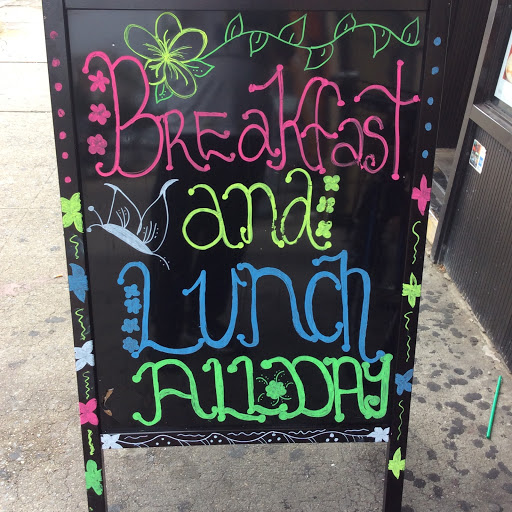 Breakfast
and
Lunch
All Day